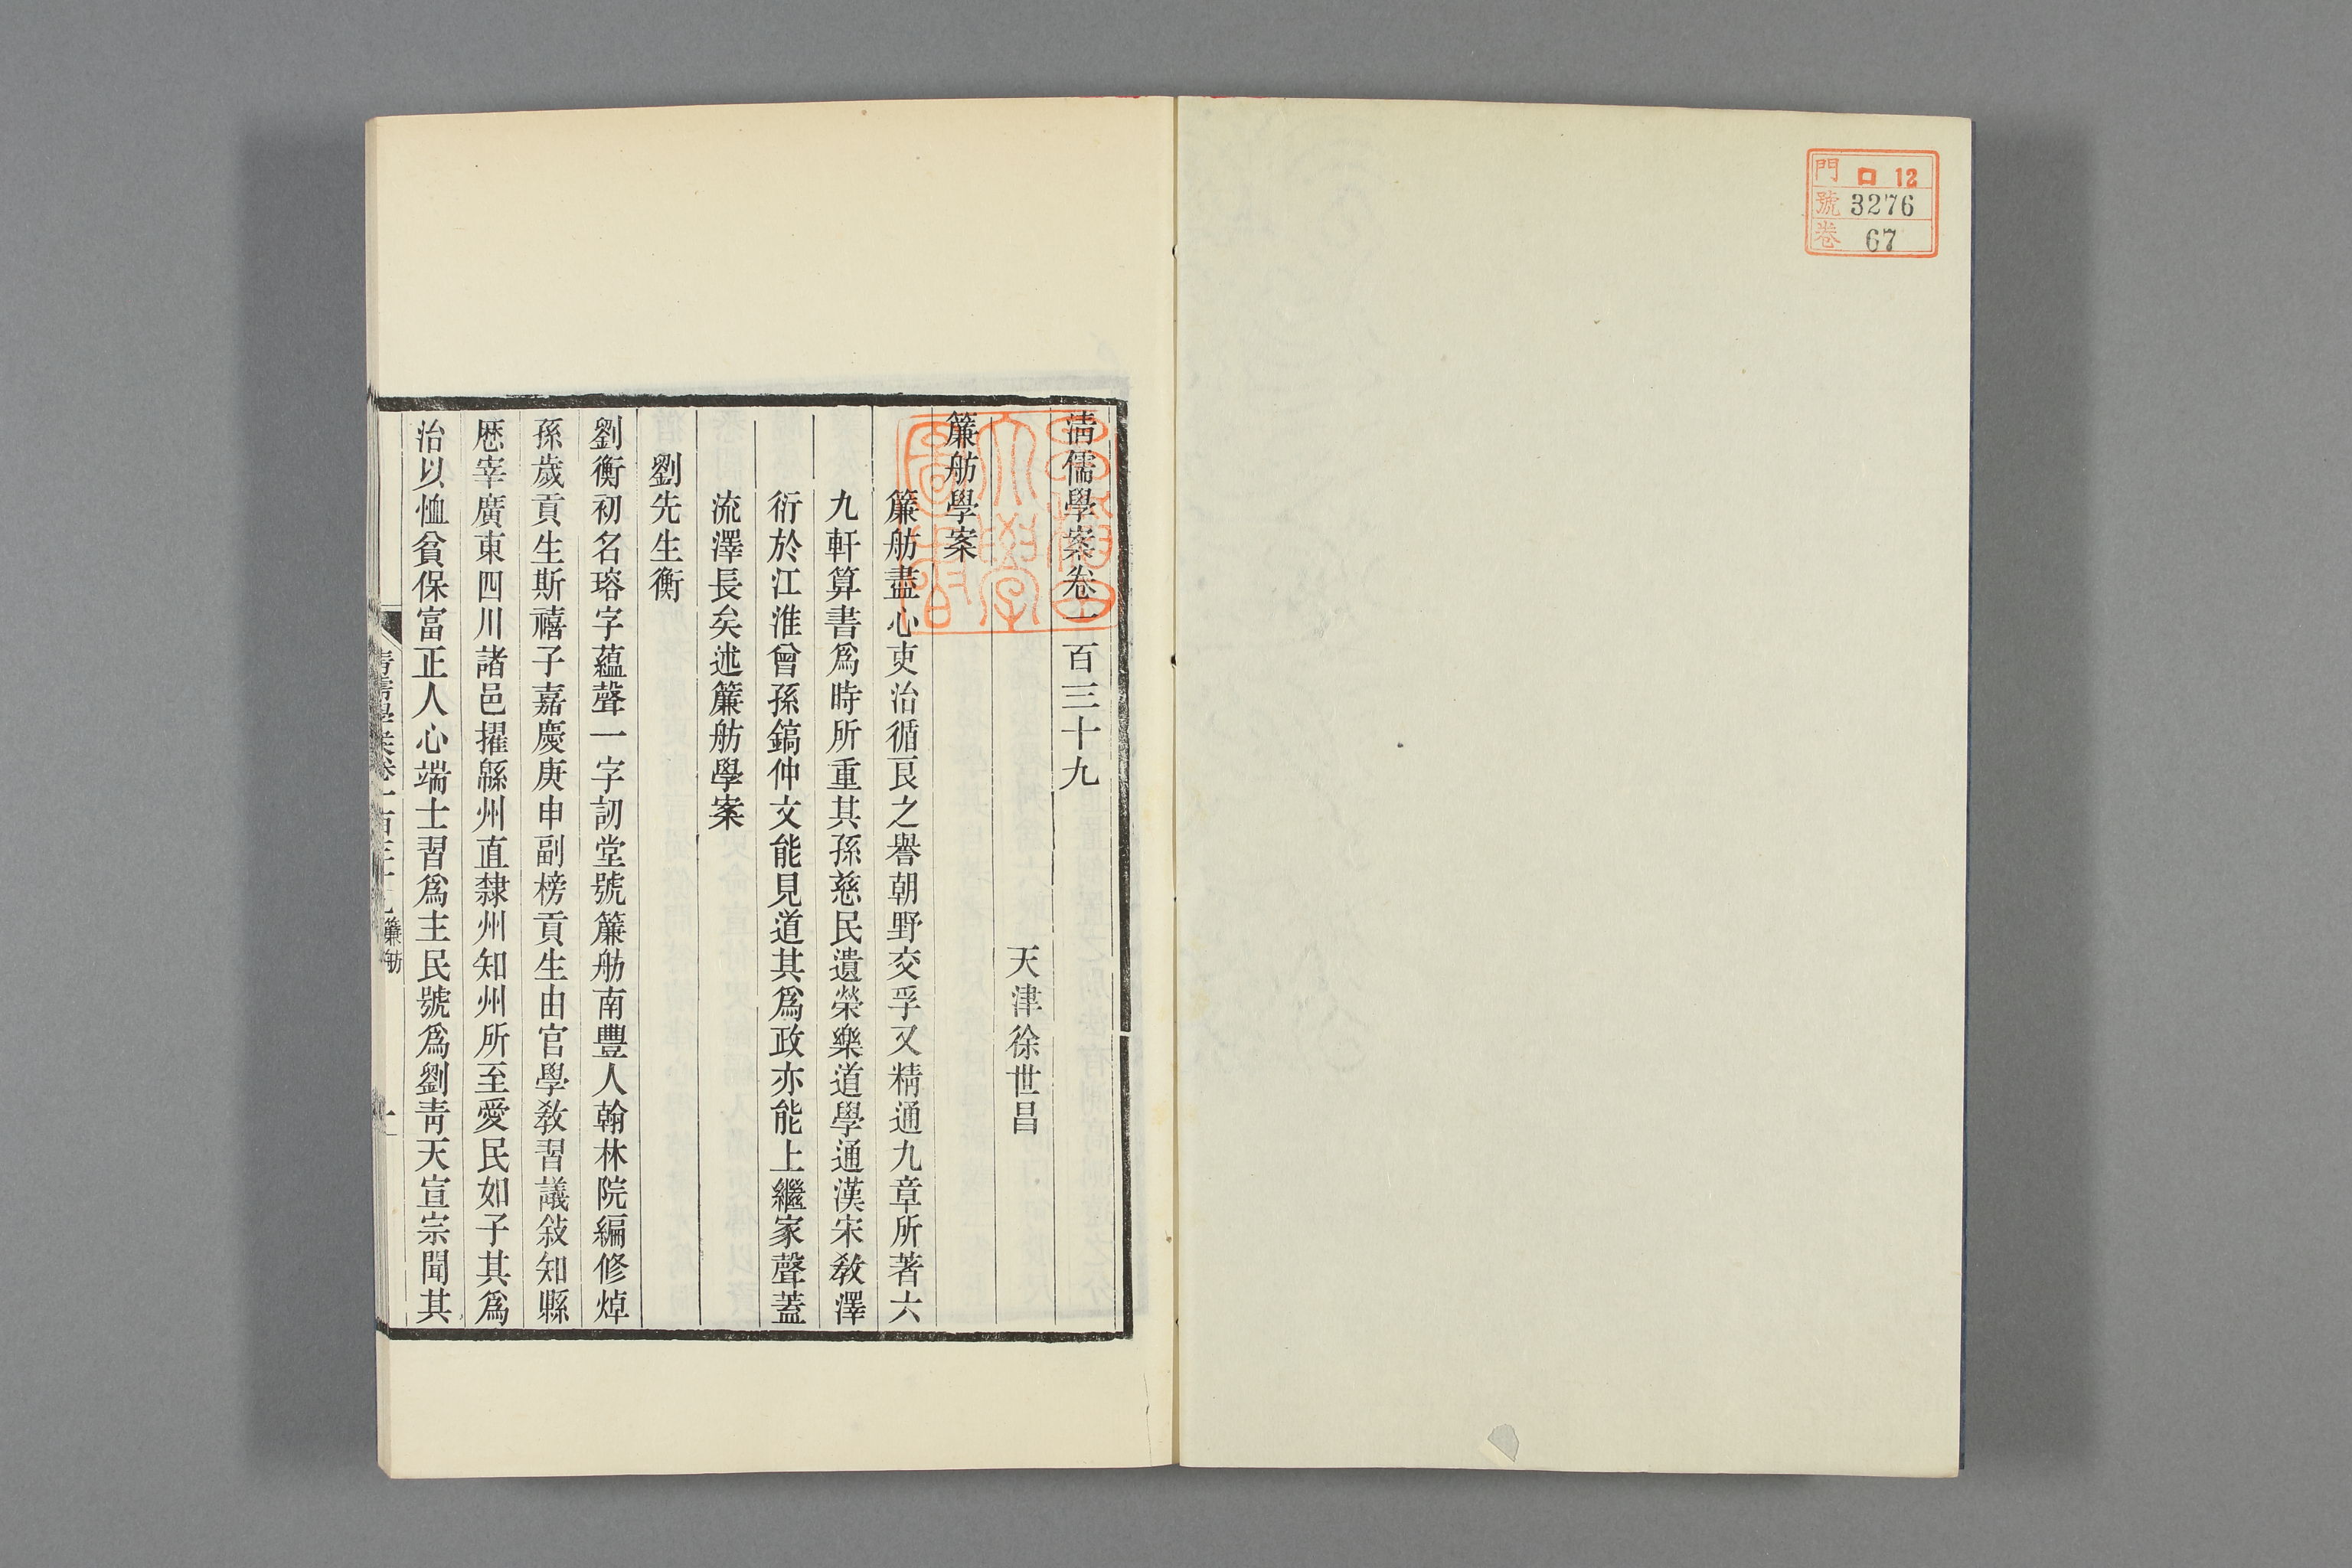 門 ロ 12
號 3276
卷 67
清儒學案卷一百三十九
天津徐世昌
簾舫學案
簾舫盡心吏治循良之譽朝野交孚又精通九章所著六
九軒算書爲時所重其孫慈民遺榮樂道學通漢宋敎澤
衍於江淮曾孫鎬仲文能見道其爲政亦能上繼家聲蓋
流澤長矣述簾舫學案
劉先生衡
劉衡初名瑢字蘊聲一字訒堂號簾舫南豐人翰林院編修焯
孫歲貢生斯禧子嘉慶庚申副榜貢生由官學敎習議敍知縣
歷宰廣東四川諸邑擢緜州直隸州知州所至愛民如子其爲
治以恤貧保富正人心端士習爲主民號爲劉靑天宣宗聞其
清儒學案卷一百三十九 簾舫 一